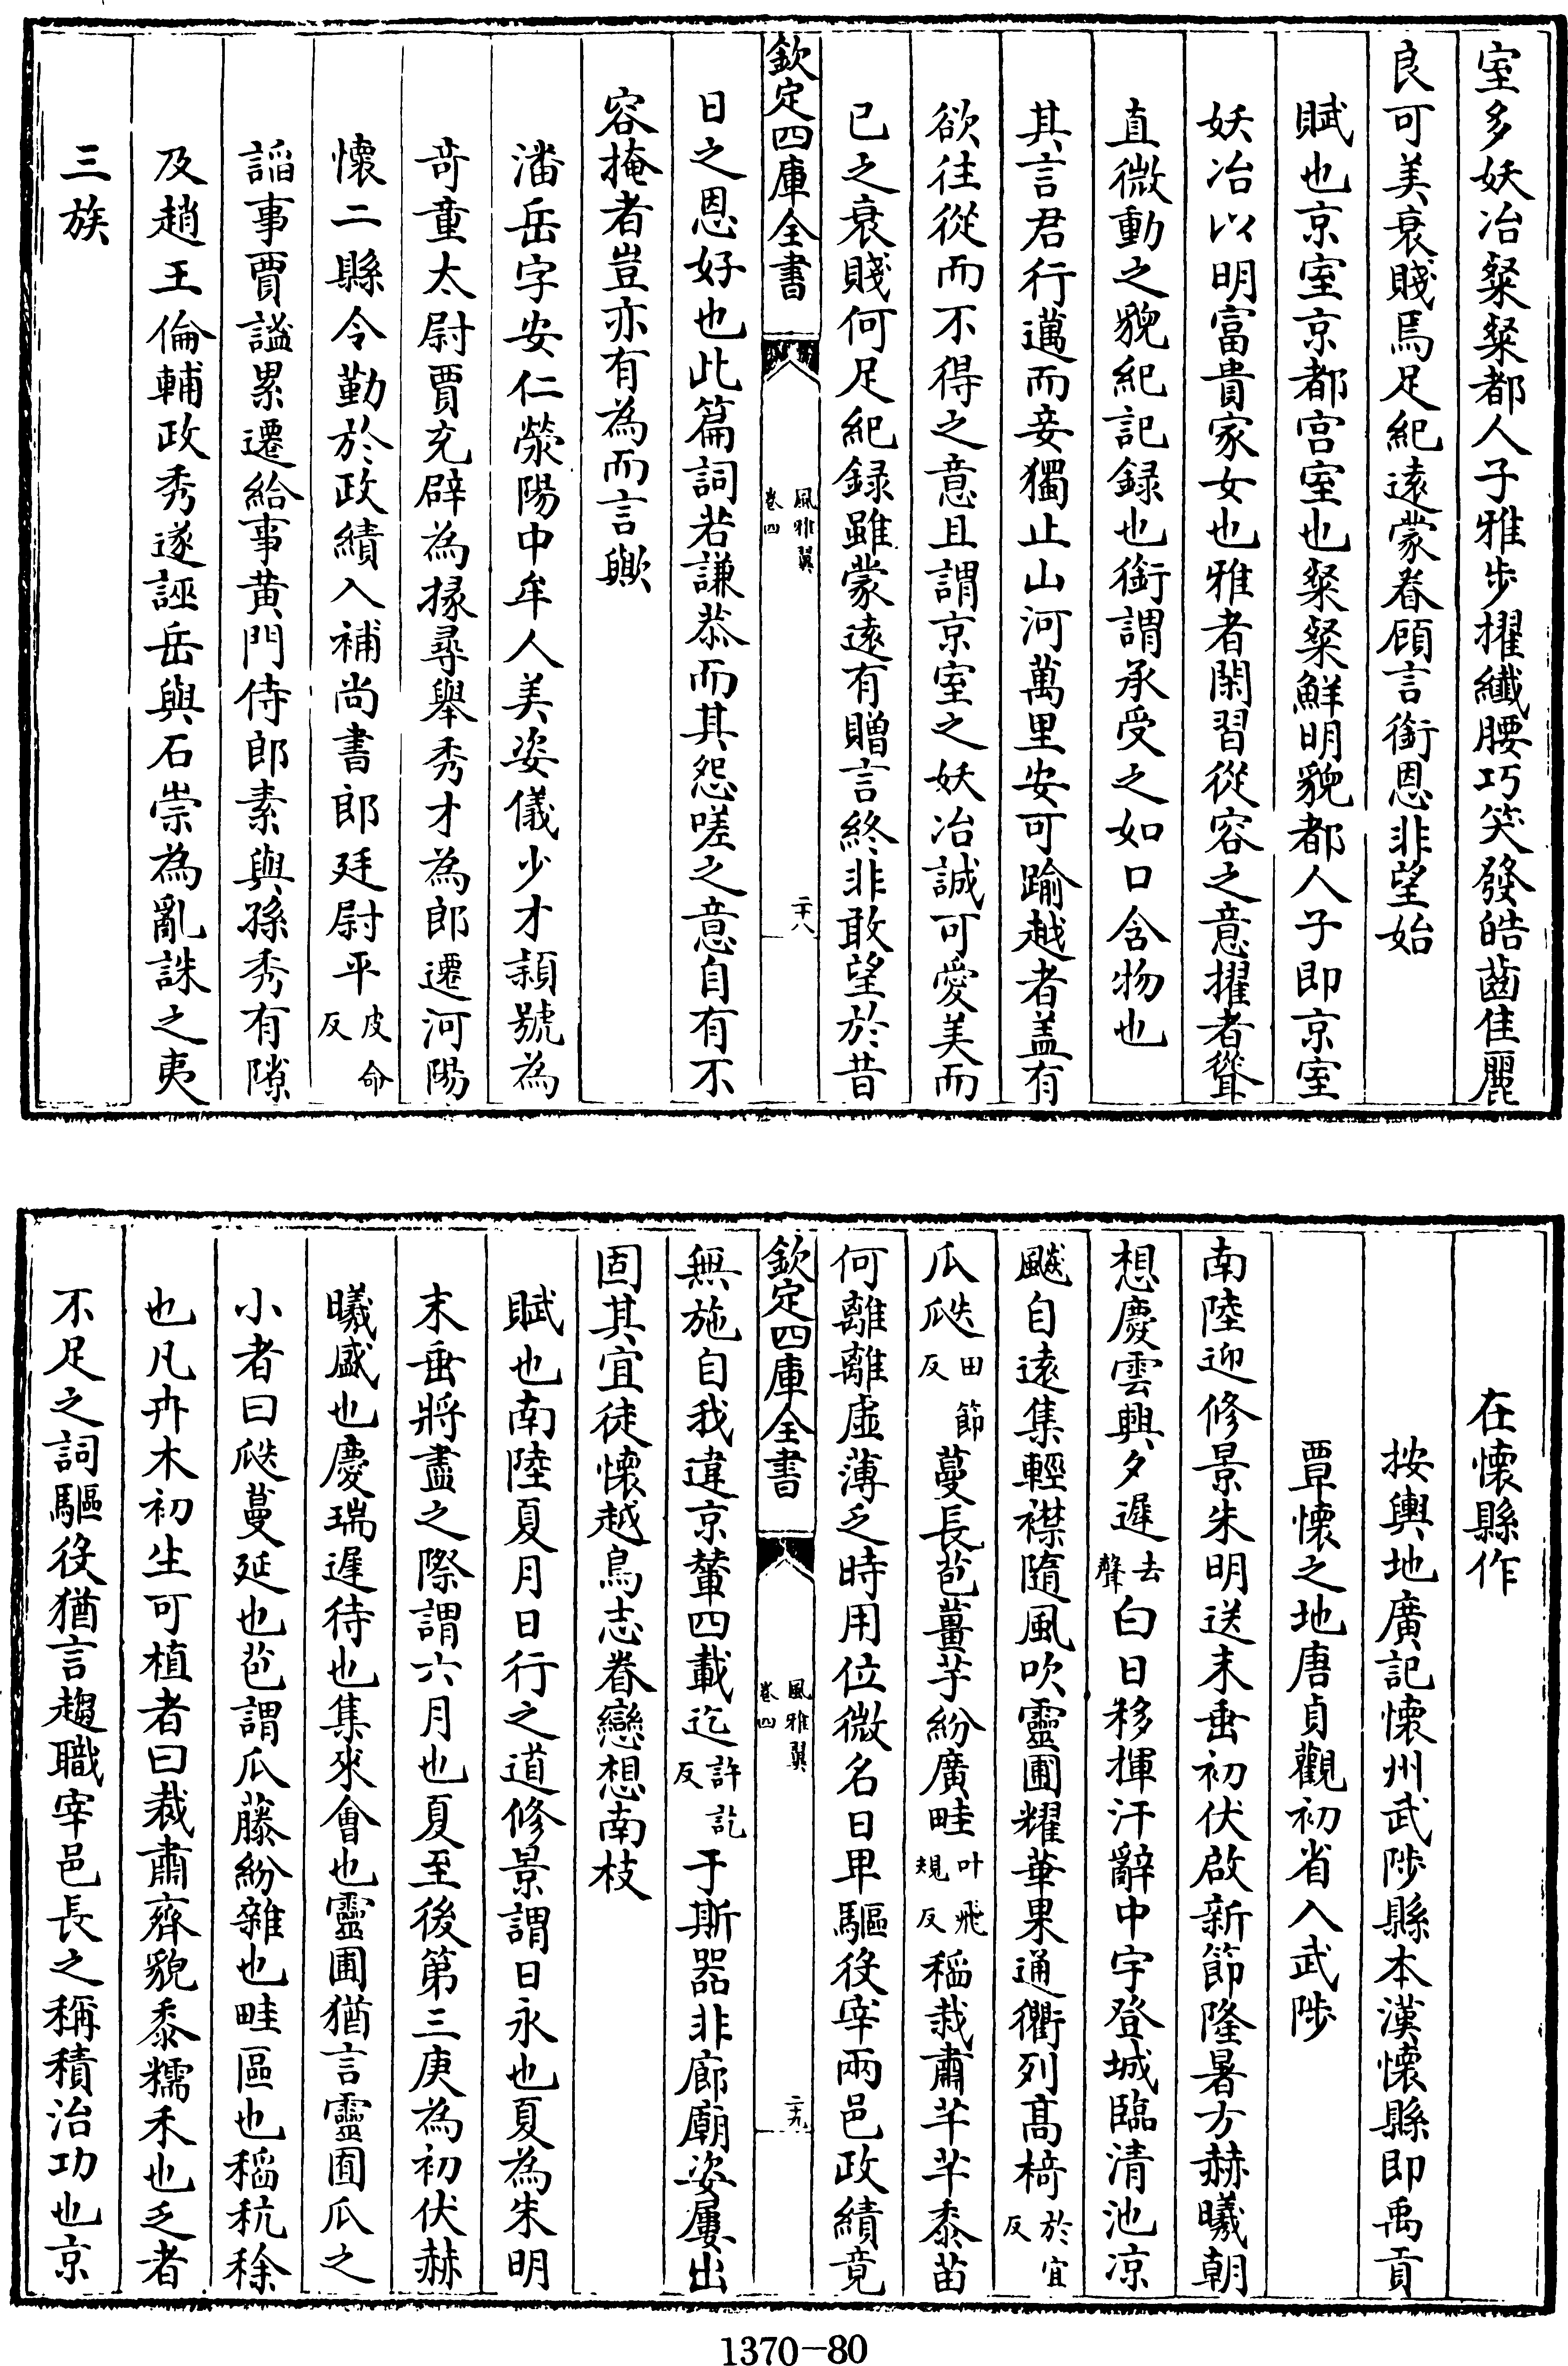 室多妖冶粲粲都人子雅步擢纖腰巧笑發皓齒佳麗
良可美衰賤焉足紀遠蒙眷顧言銜恩非望始
賦也京室京都宫室也粲粲鮮明貌都人子即京室
妖冶以明富貴家女也雅者閑習從容之意擢者聳
直微動之貌紀記録也銜謂承受之如口含物也
其言君行邁而妾獨止山河萬里安可踰越者盖有
欲往從而不得之意且謂京室之妖冶誠可愛美而
已之衰賤何足紀録雖蒙遠有贈言終非敢望於昔
欽定四庫全書
風雅翼
卷四
二十八
日之恩好也此篇詞若謙恭而其怨嗟之意自有不
容掩者豈亦有為而言歟
潘岳字安仁滎陽中牟人美姿儀少才頴號為
奇童太尉賈充辟為掾尋舉秀才為郎遷河陽
懷二縣令勤於政績入補尚書郎廷尉平皮命反
謟事賈謐累遷給事黄門侍郎素與孫秀有隙
及趙王倫輔政秀遂誣岳與石崇為亂誅之夷
三族
在懷縣作
按輿地廣記懷州武陟縣本漢懷縣即禹貢
覃懷之地唐貞觀初省入武陟
南陸迎修景朱明送末垂初伏啟新節隆暑方赫曦朝
想慶雲興夕遲去聲白日移揮汗辭中宇登城臨清池凉
飈自遠集輕襟隨風吹靈圃耀華果通衢列高椅於宜反
瓜瓞田節反蔓長苞薑芋紛廣畦叶飛規反稻栽肅芊芊黍苗
何離離虛薄乏時用位微名日卑驅役宰兩邑政績竟
欽定四庫全書
風雅翼
卷四
二十九
無施自我違京輦四載迄許訖反于斯器非廊廟姿屢出
固其宜徒懷越鳥志眷戀想南枝
賦也南陸夏月日行之道修景謂日永也夏為朱明
末垂將盡之際謂六月也夏至後第三庚為初伏赫
曦盛也慶瑞遲待也集來會也靈圃猶言靈囿瓜之
小者曰瓞蔓延也苞謂瓜藤紛雜也畦區也稻秔稌
也凡卉木初生可植者曰栽肅齊貌黍糯禾也乏者
不足之詞驅役猶言趨職宰邑長之稱積治功也京
1370-80